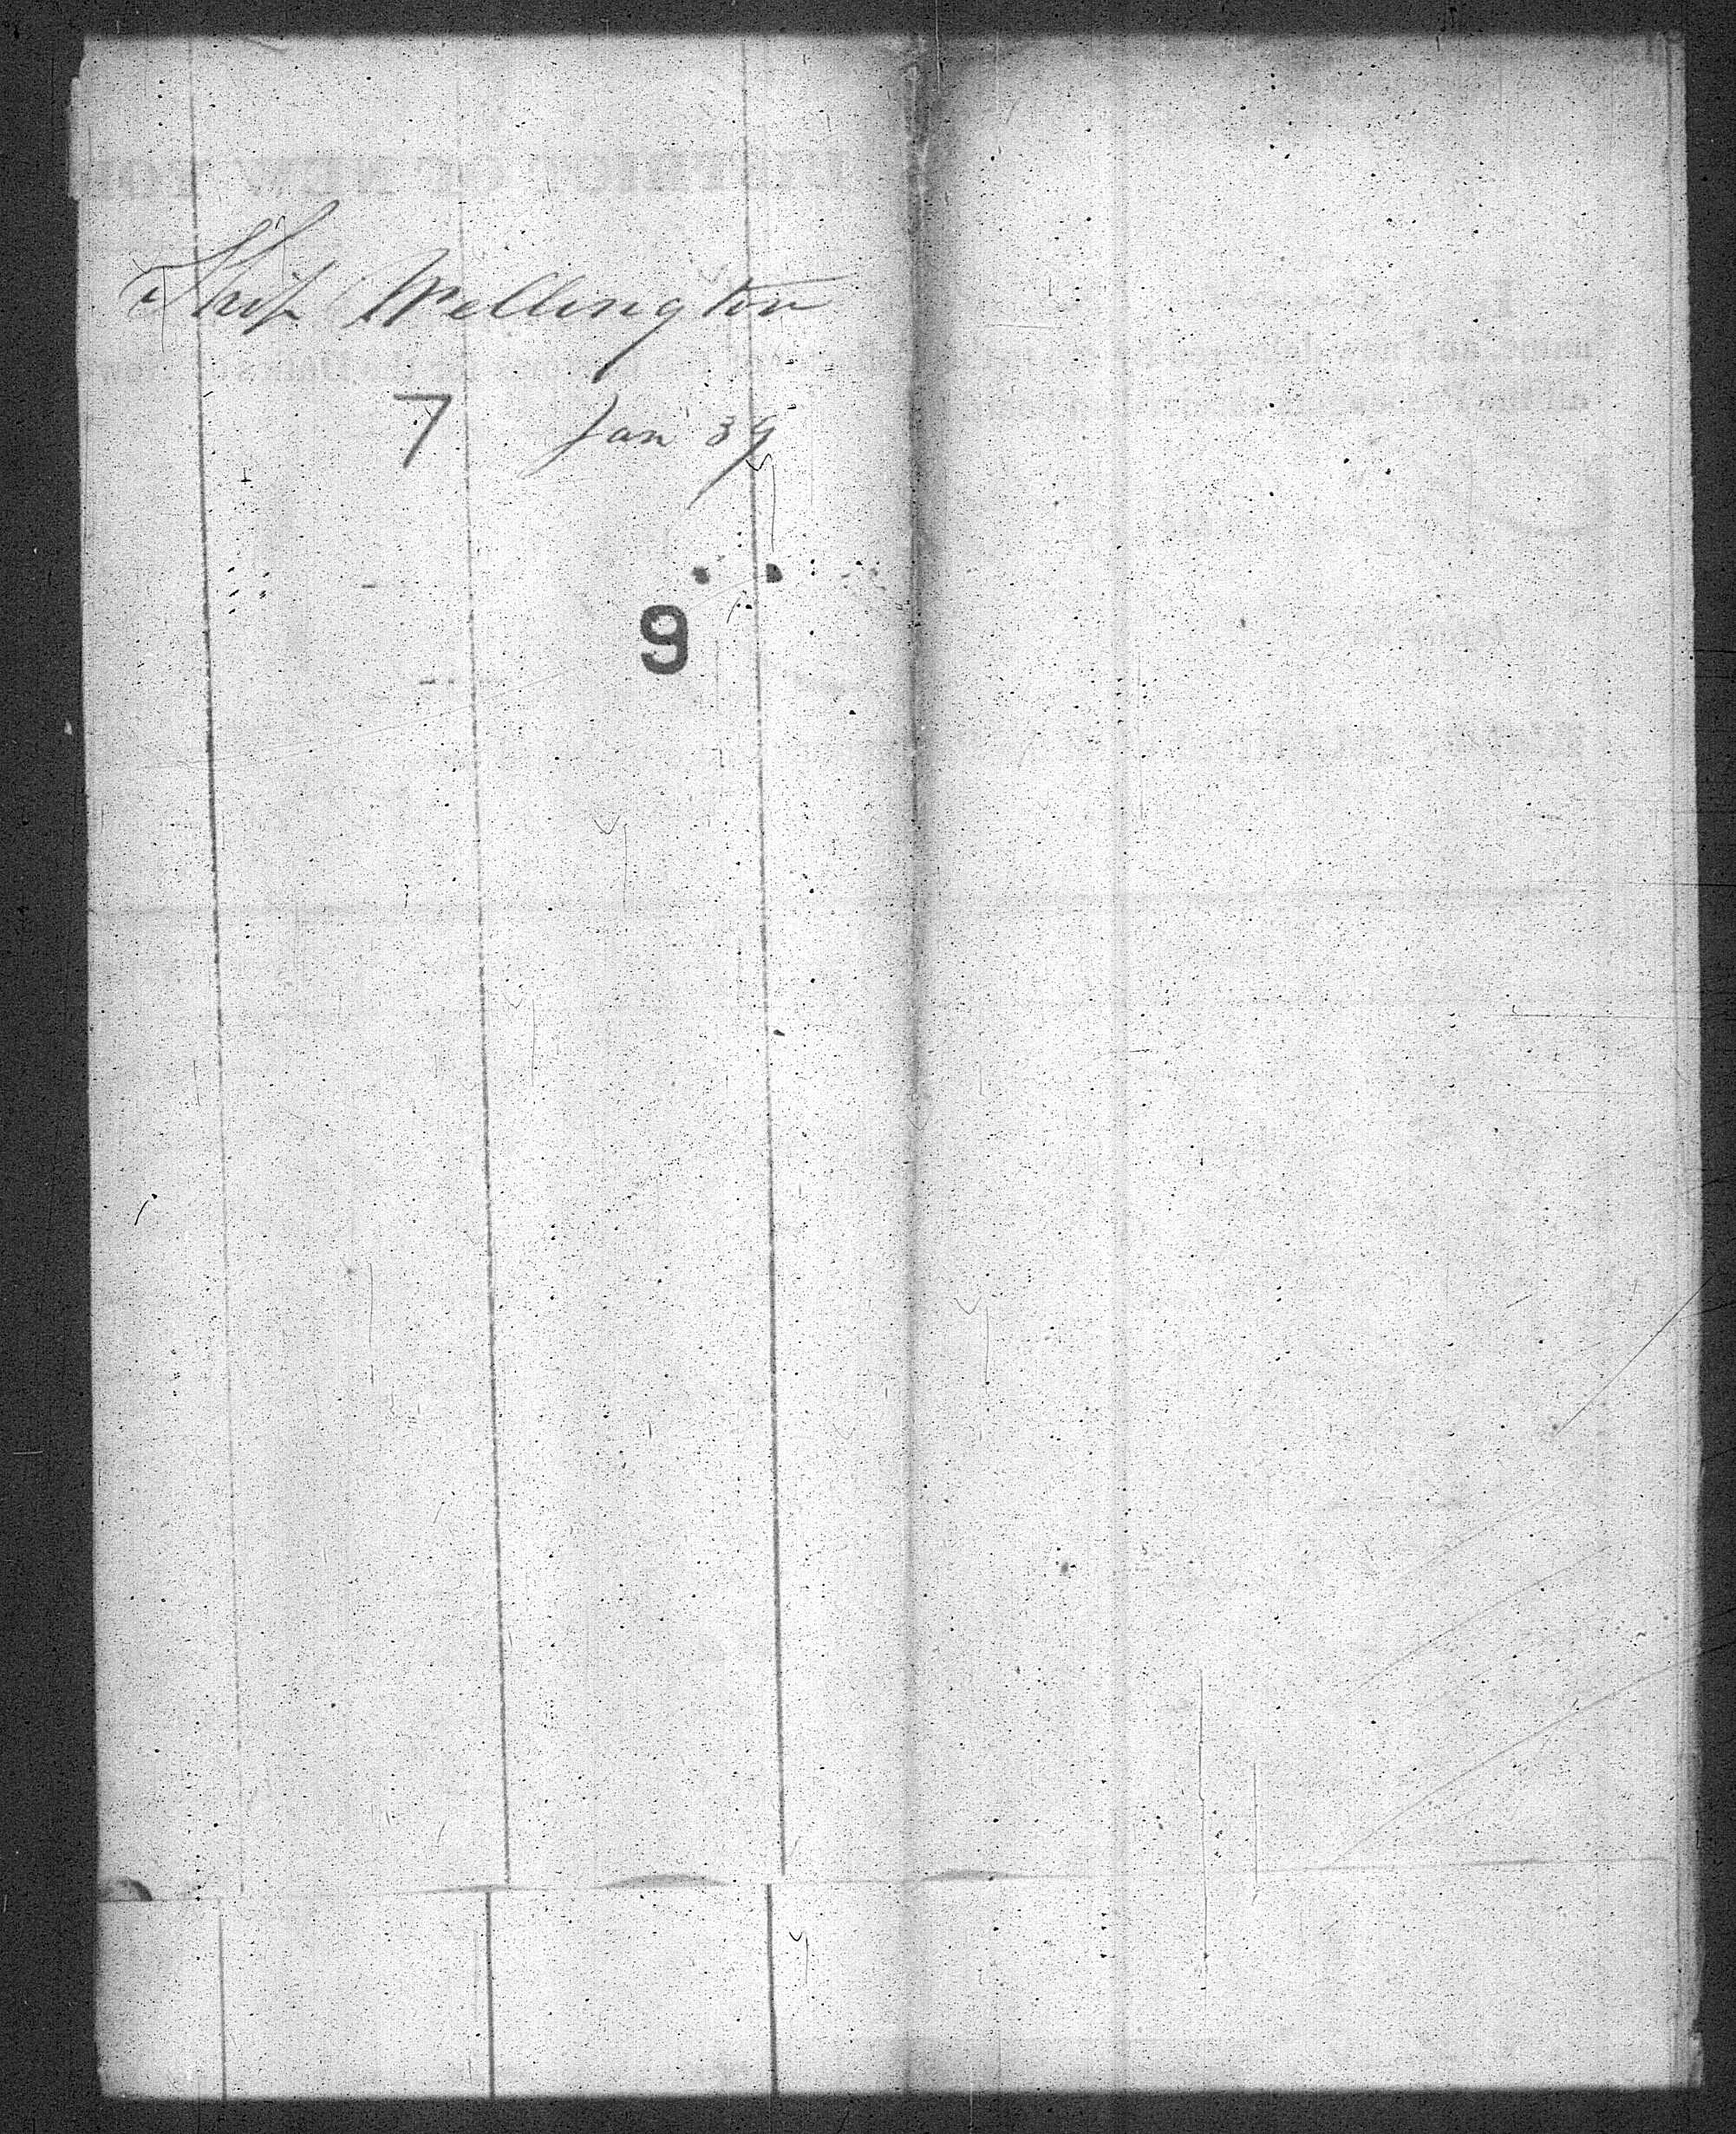 Ship Wellington
7 Jan 39
9